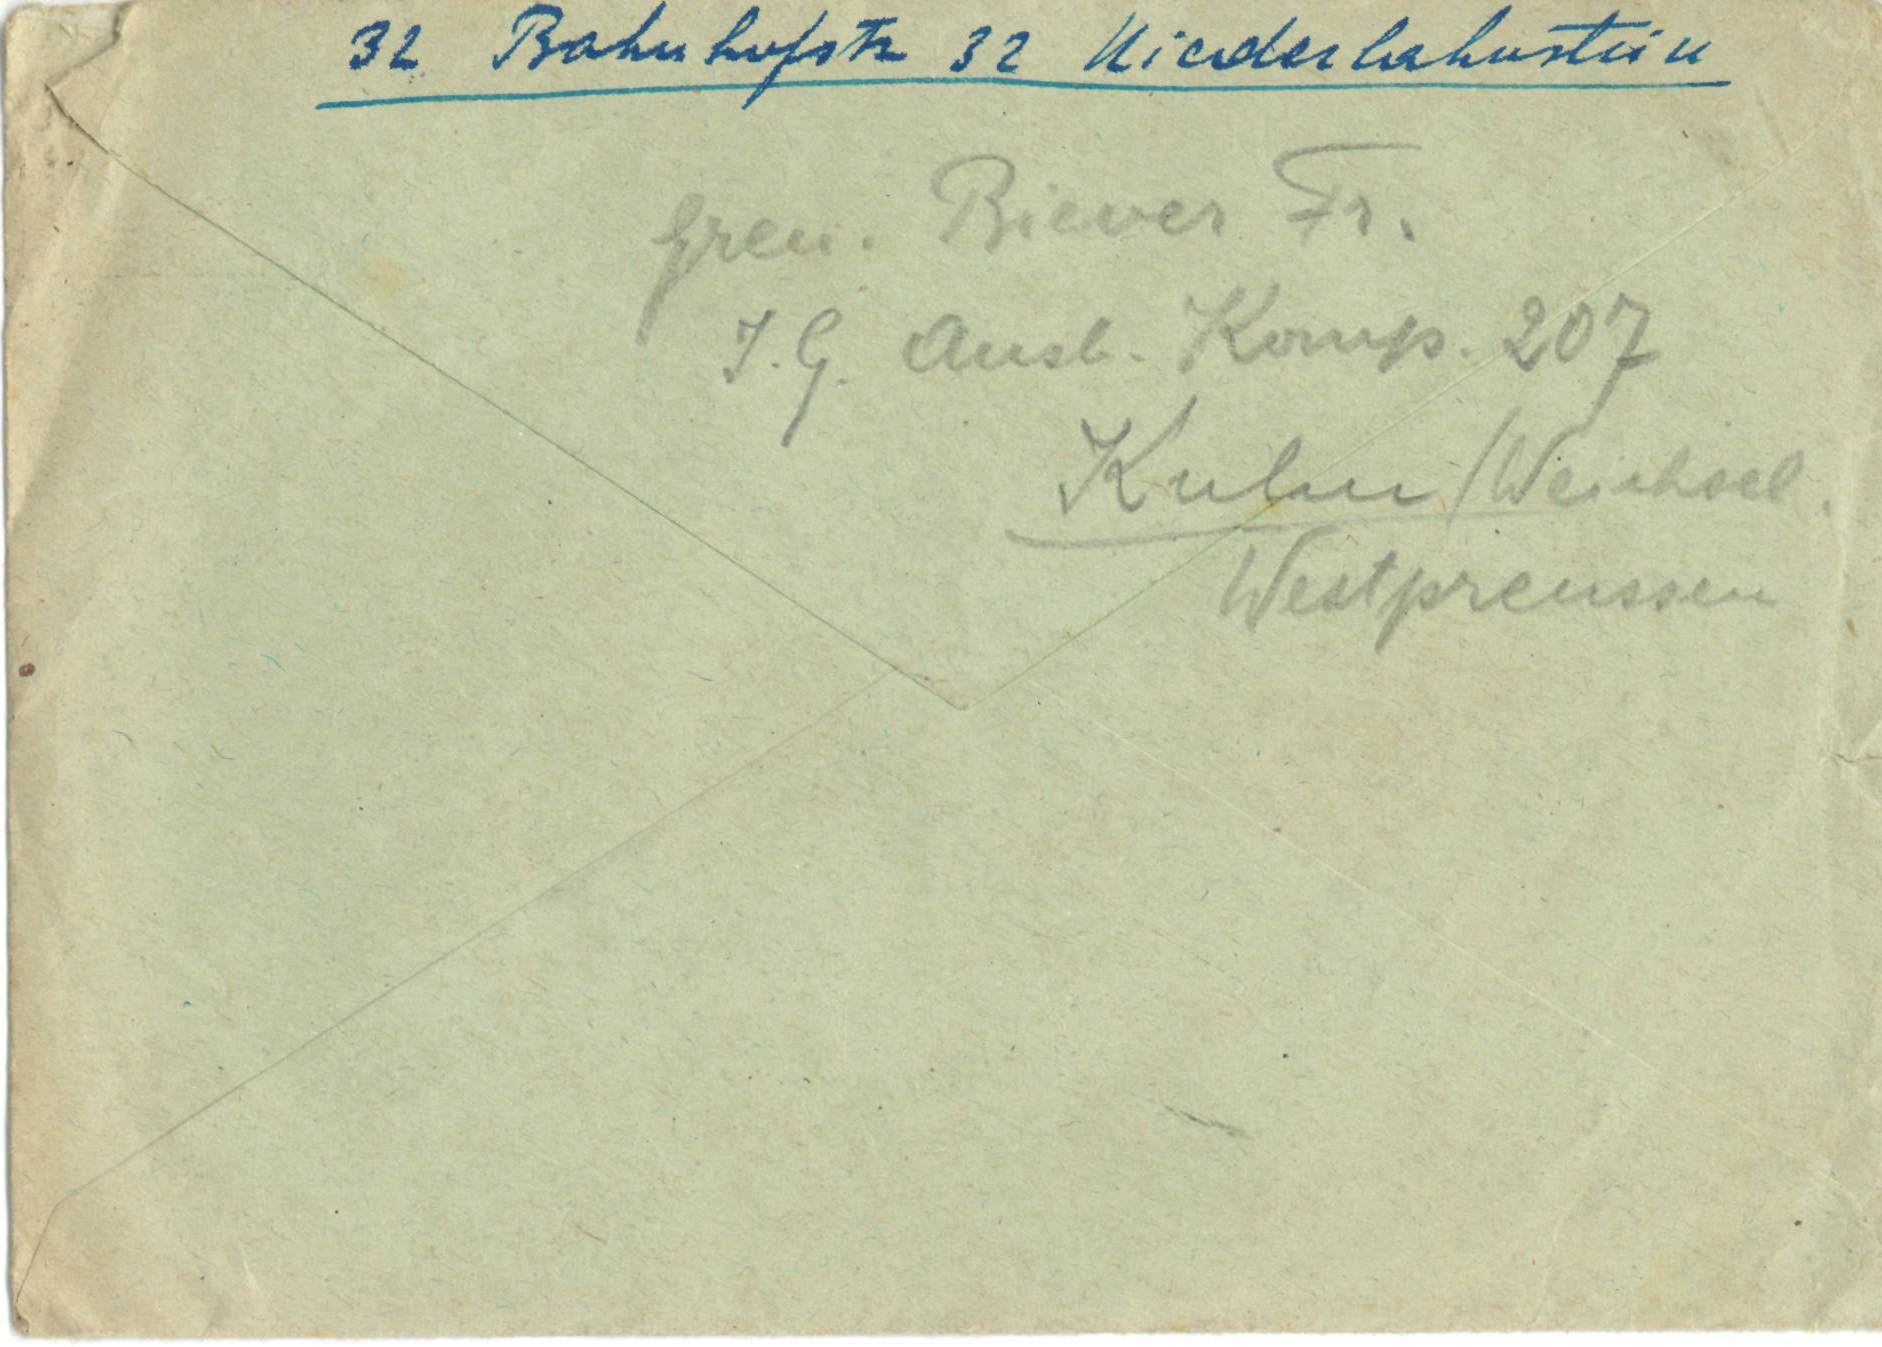 32 Bahnhofstr 32 Niederlahnstein
Gren. Biever Fr.
I.G. Ausb. Komp. 207
Kulm/Weichsel.
Westpreussen